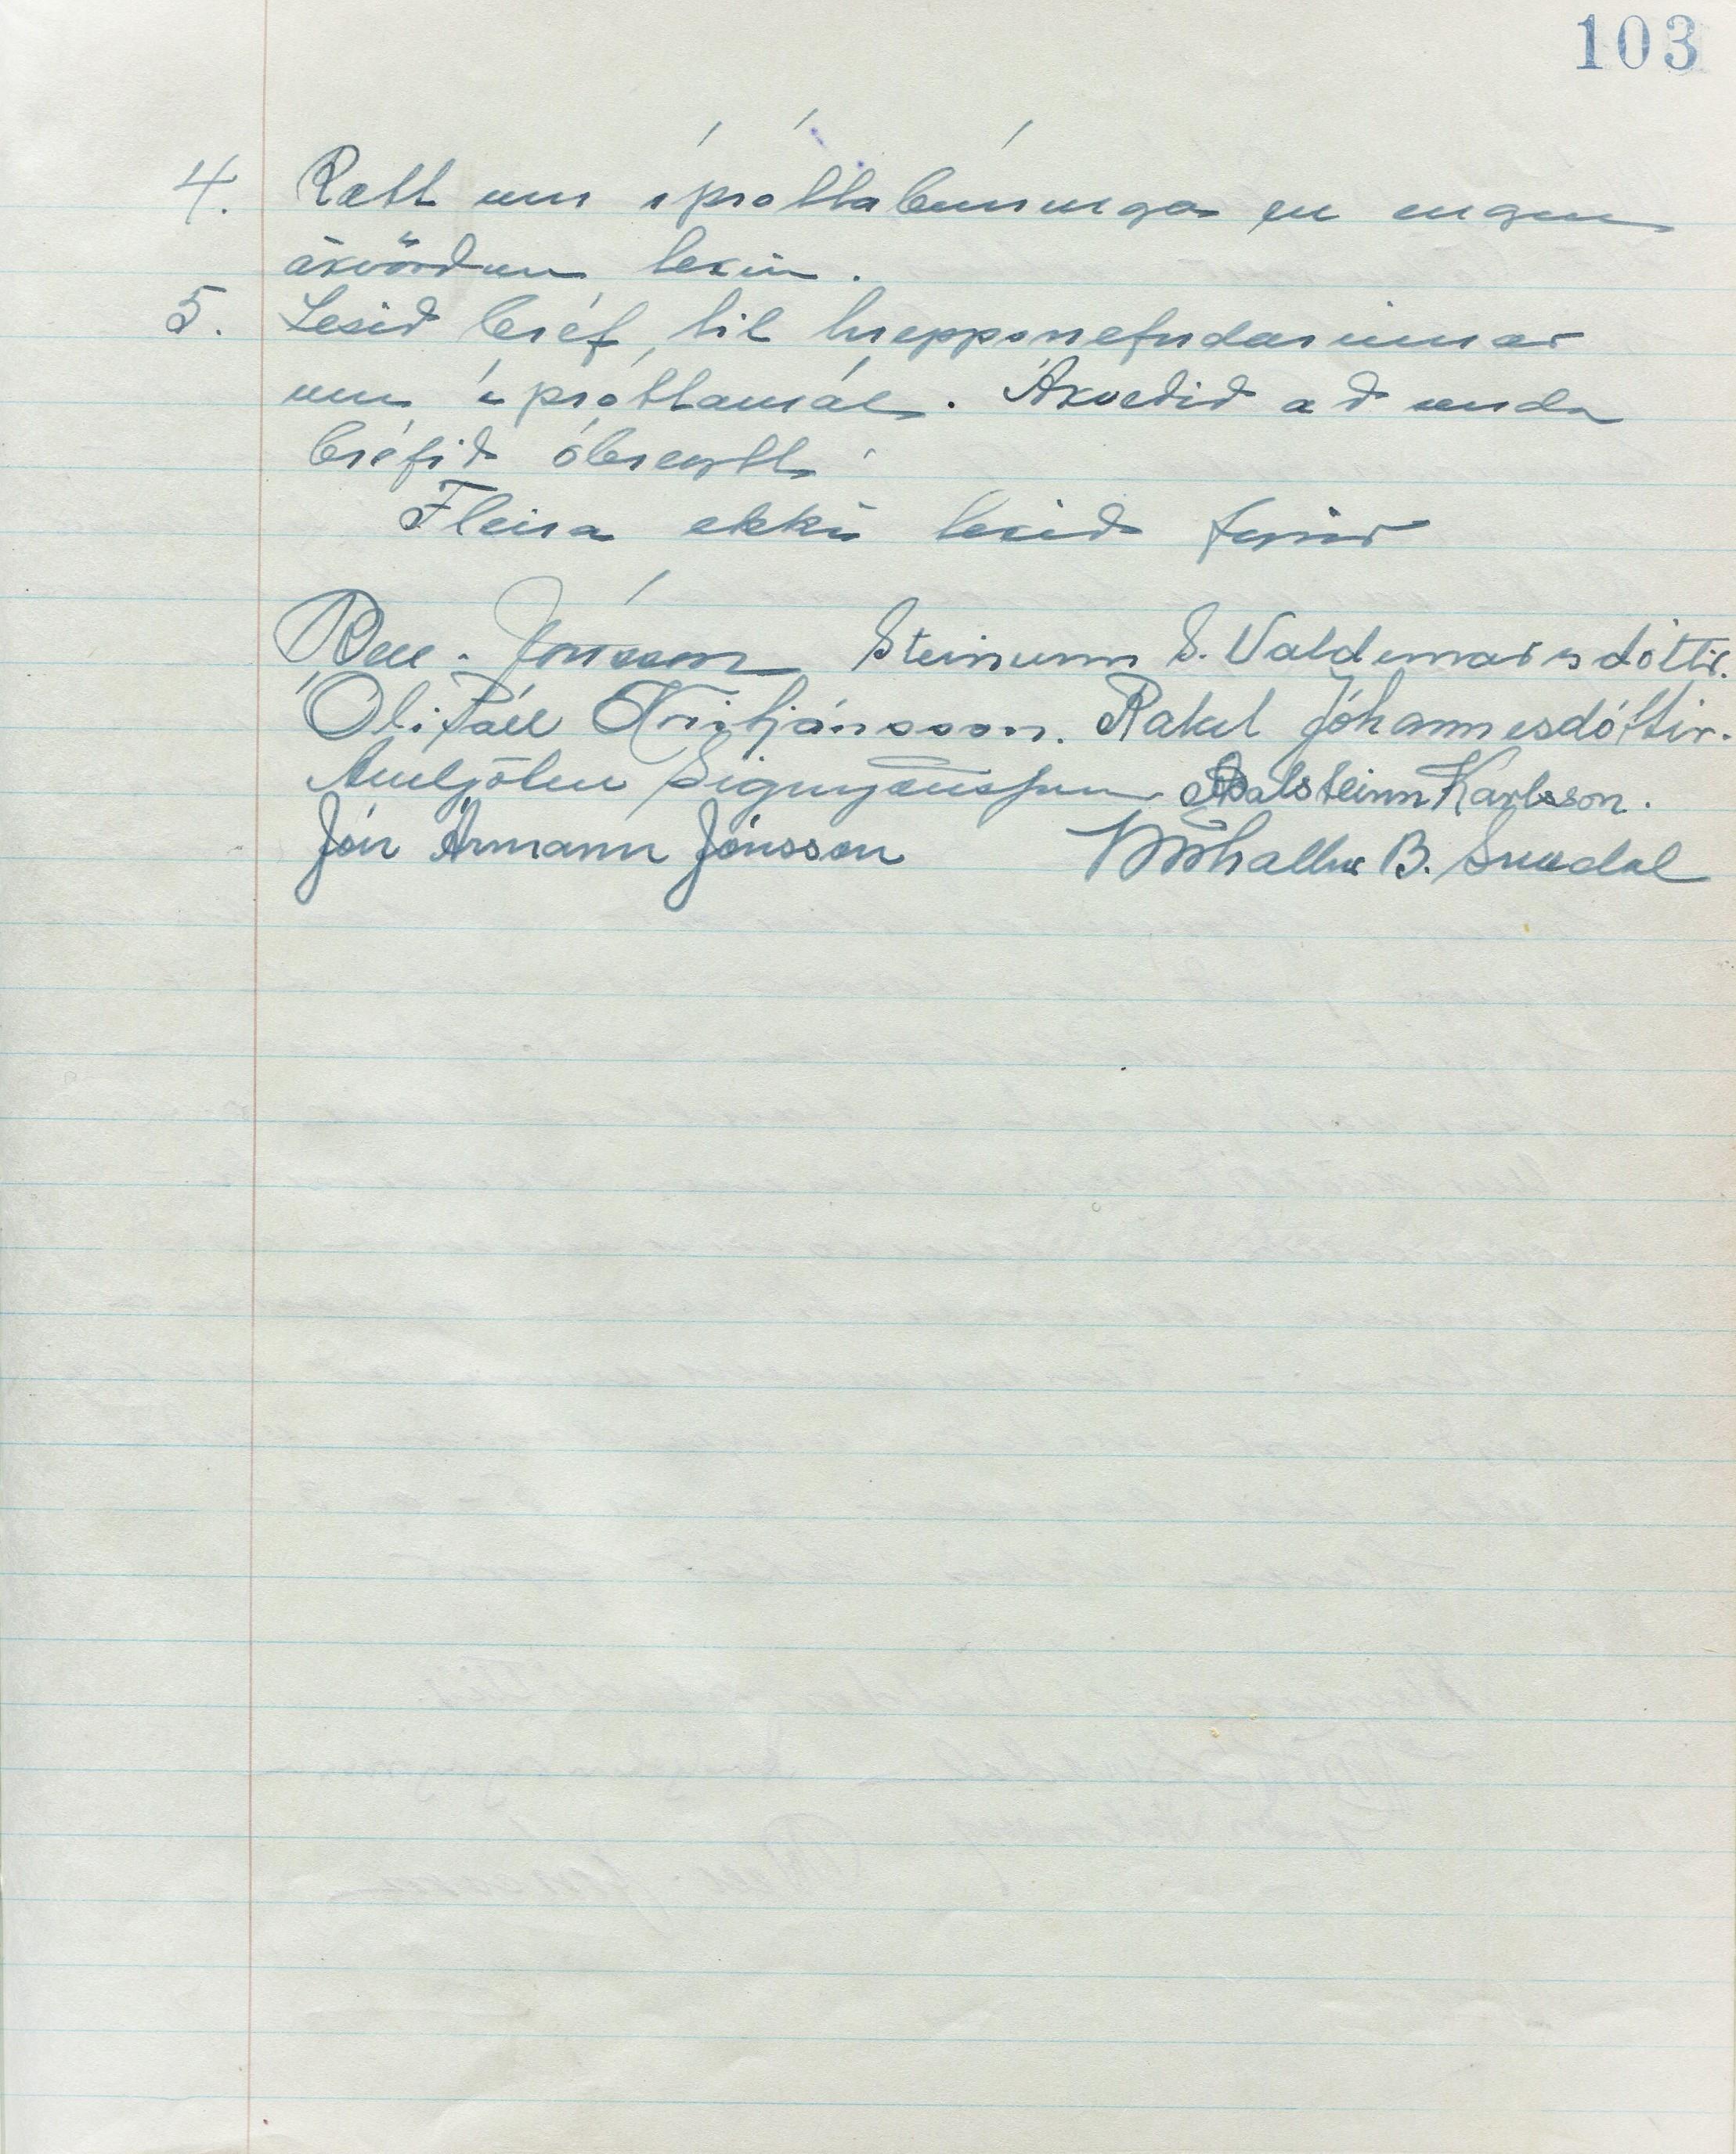 103
4. Rætt um íþróttabúninga en engin
ákvörðun tekin.
5. Lesið bréf til hreppsnefndarinnar
um íþróttamál. Ákveðið að senda
bréfið óbreytt.
Fleira ekki tekið fyrir
Jónsson Steinunn S. Valdemarsdóttir.
Óli Páll Kristjánsson. Rakel Jóhannesdóttir.
Sigurjónsson Aðalsteinn Karlsson.
Jón Ármann Jónsson Þórhallur B. Snædal